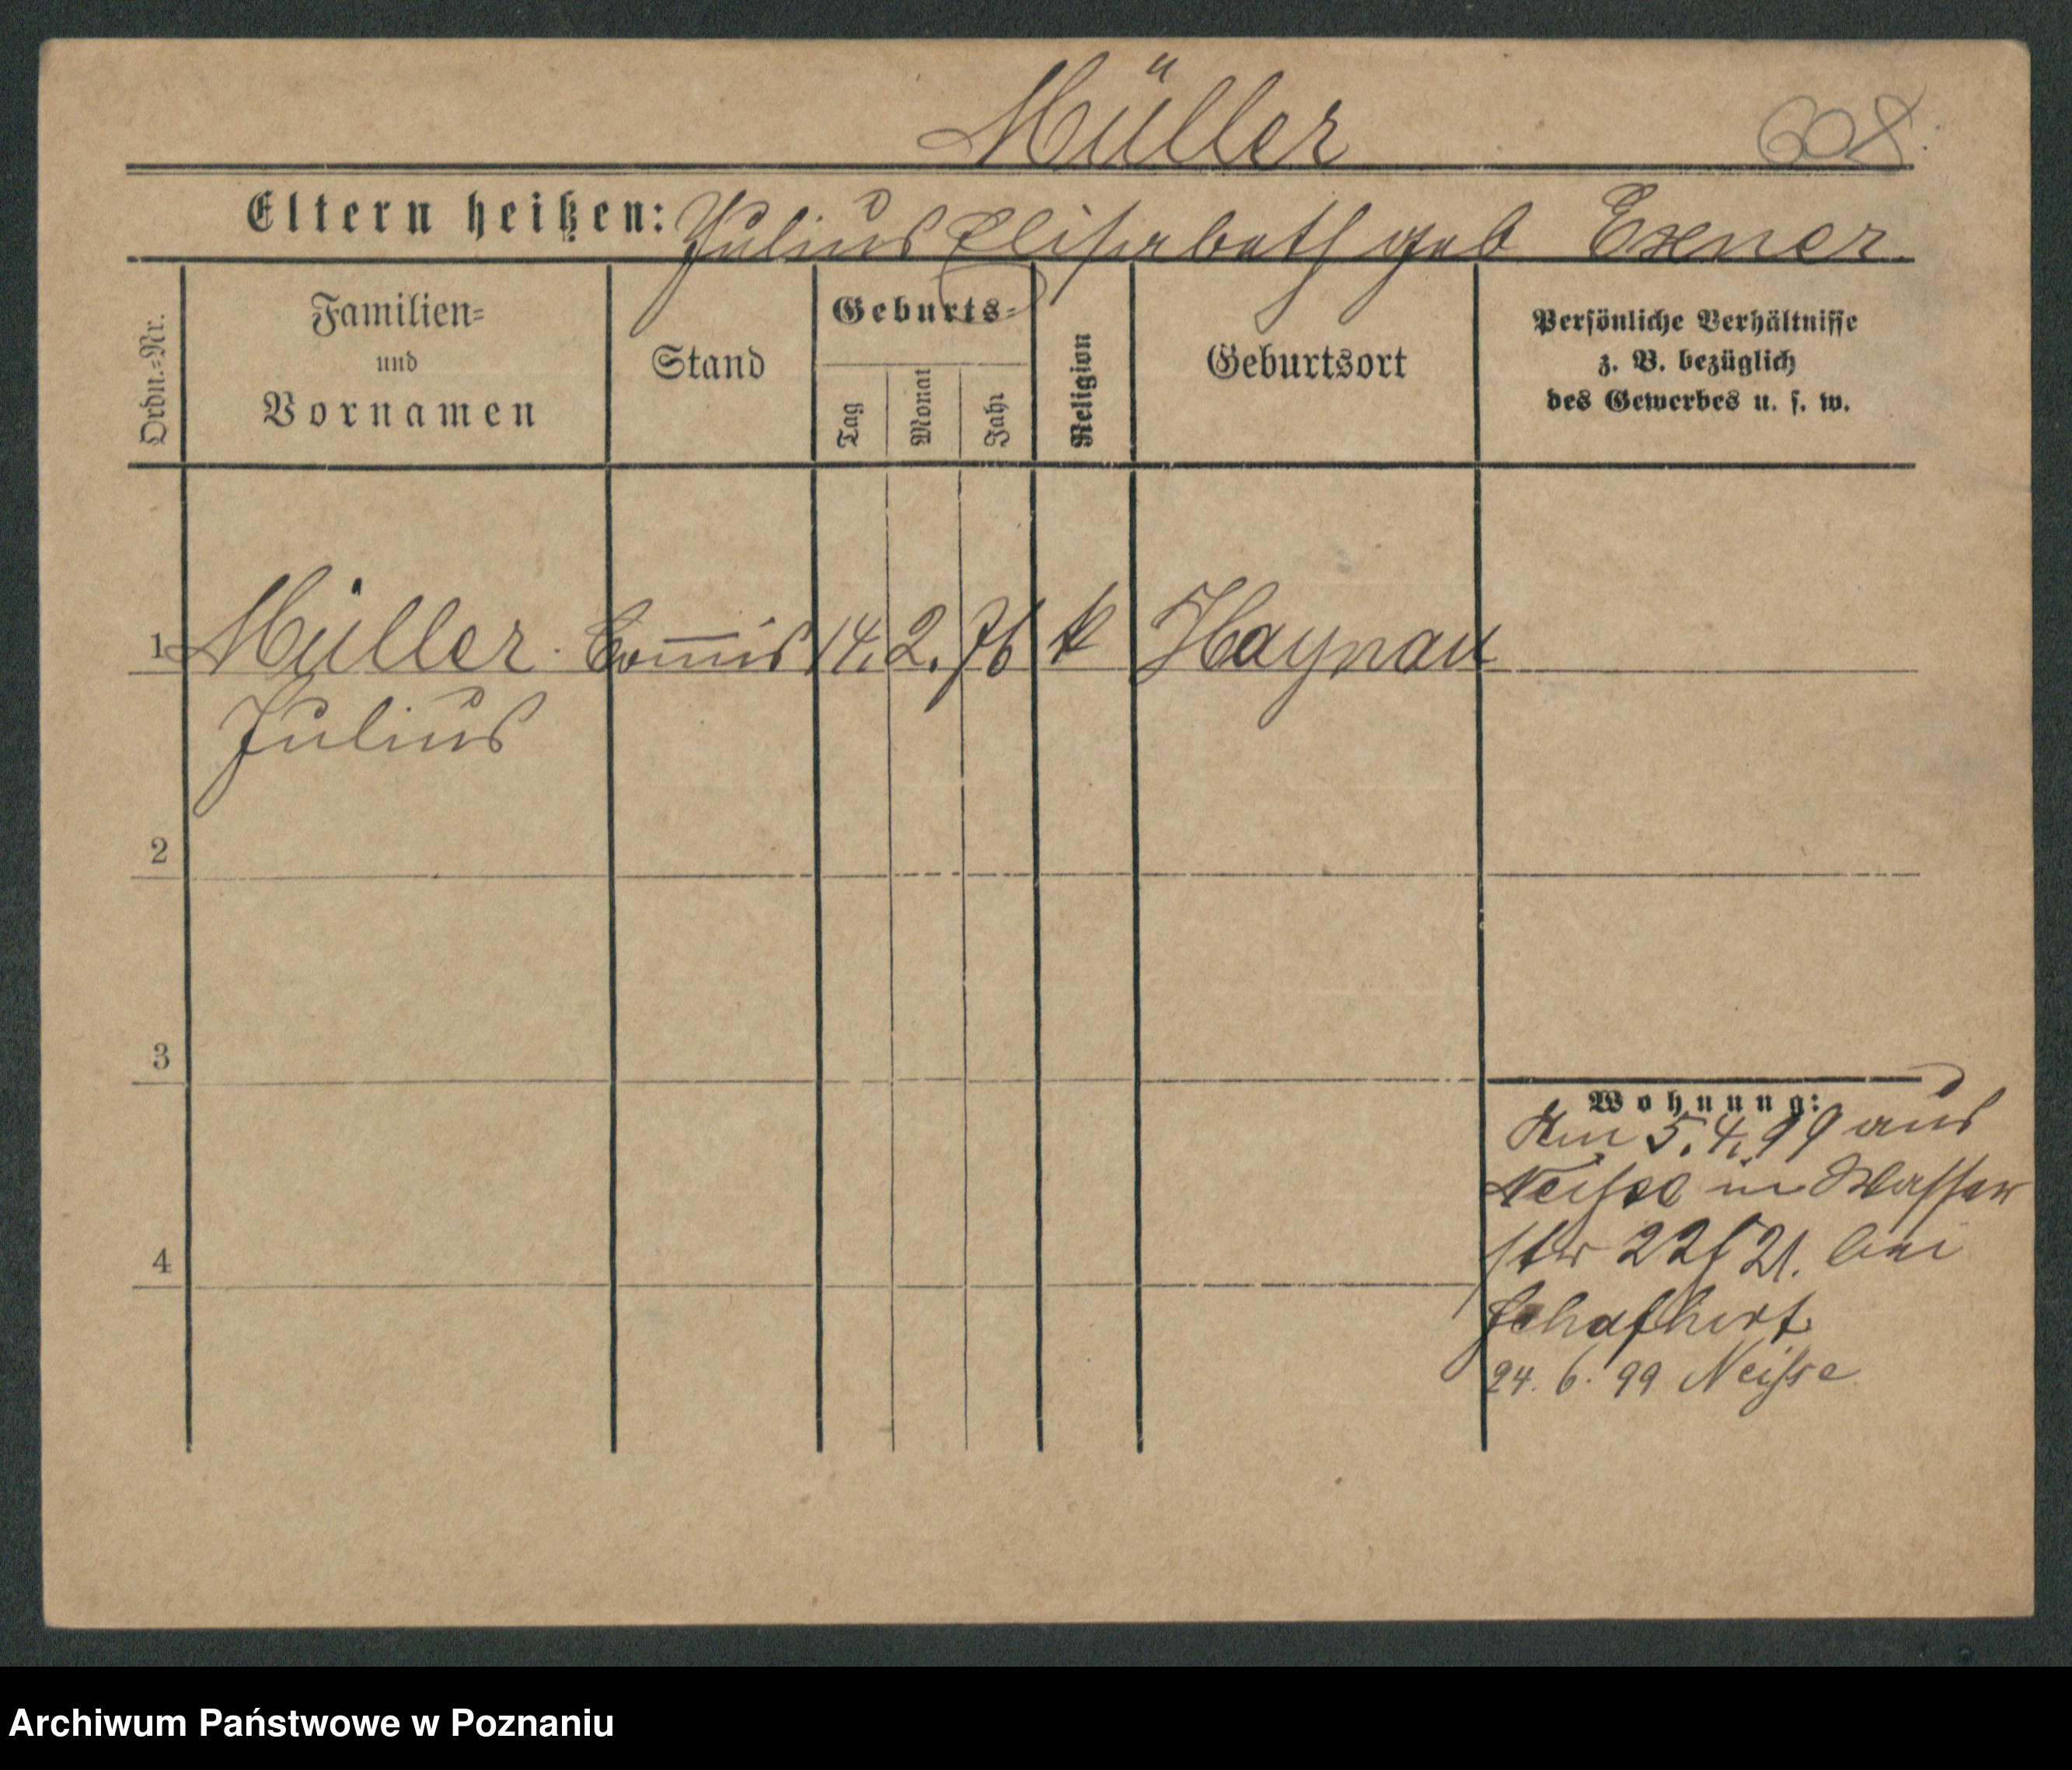 Müller
608
Eltern heißen: Julius Elisabeth geb Exner.
Ordn.=Nr.
Familien=
und
Vornamen
Stand
Geburts=
Tag
Monat
Jahr
Religion
Geburtsort
Persönliche Verhältnisse
z. B. bezüglich
des Gewerbes u. s. w.
1 Müller Com̅is 14. 2. 76 k Haynau
Julius
2
3
4
Wohnung:
Am 5.4.99 aus
Neisse in Wasser
str 22 21. bei
24. 6. 99 Neisse
Archiwum Państwowe w Poznaniu